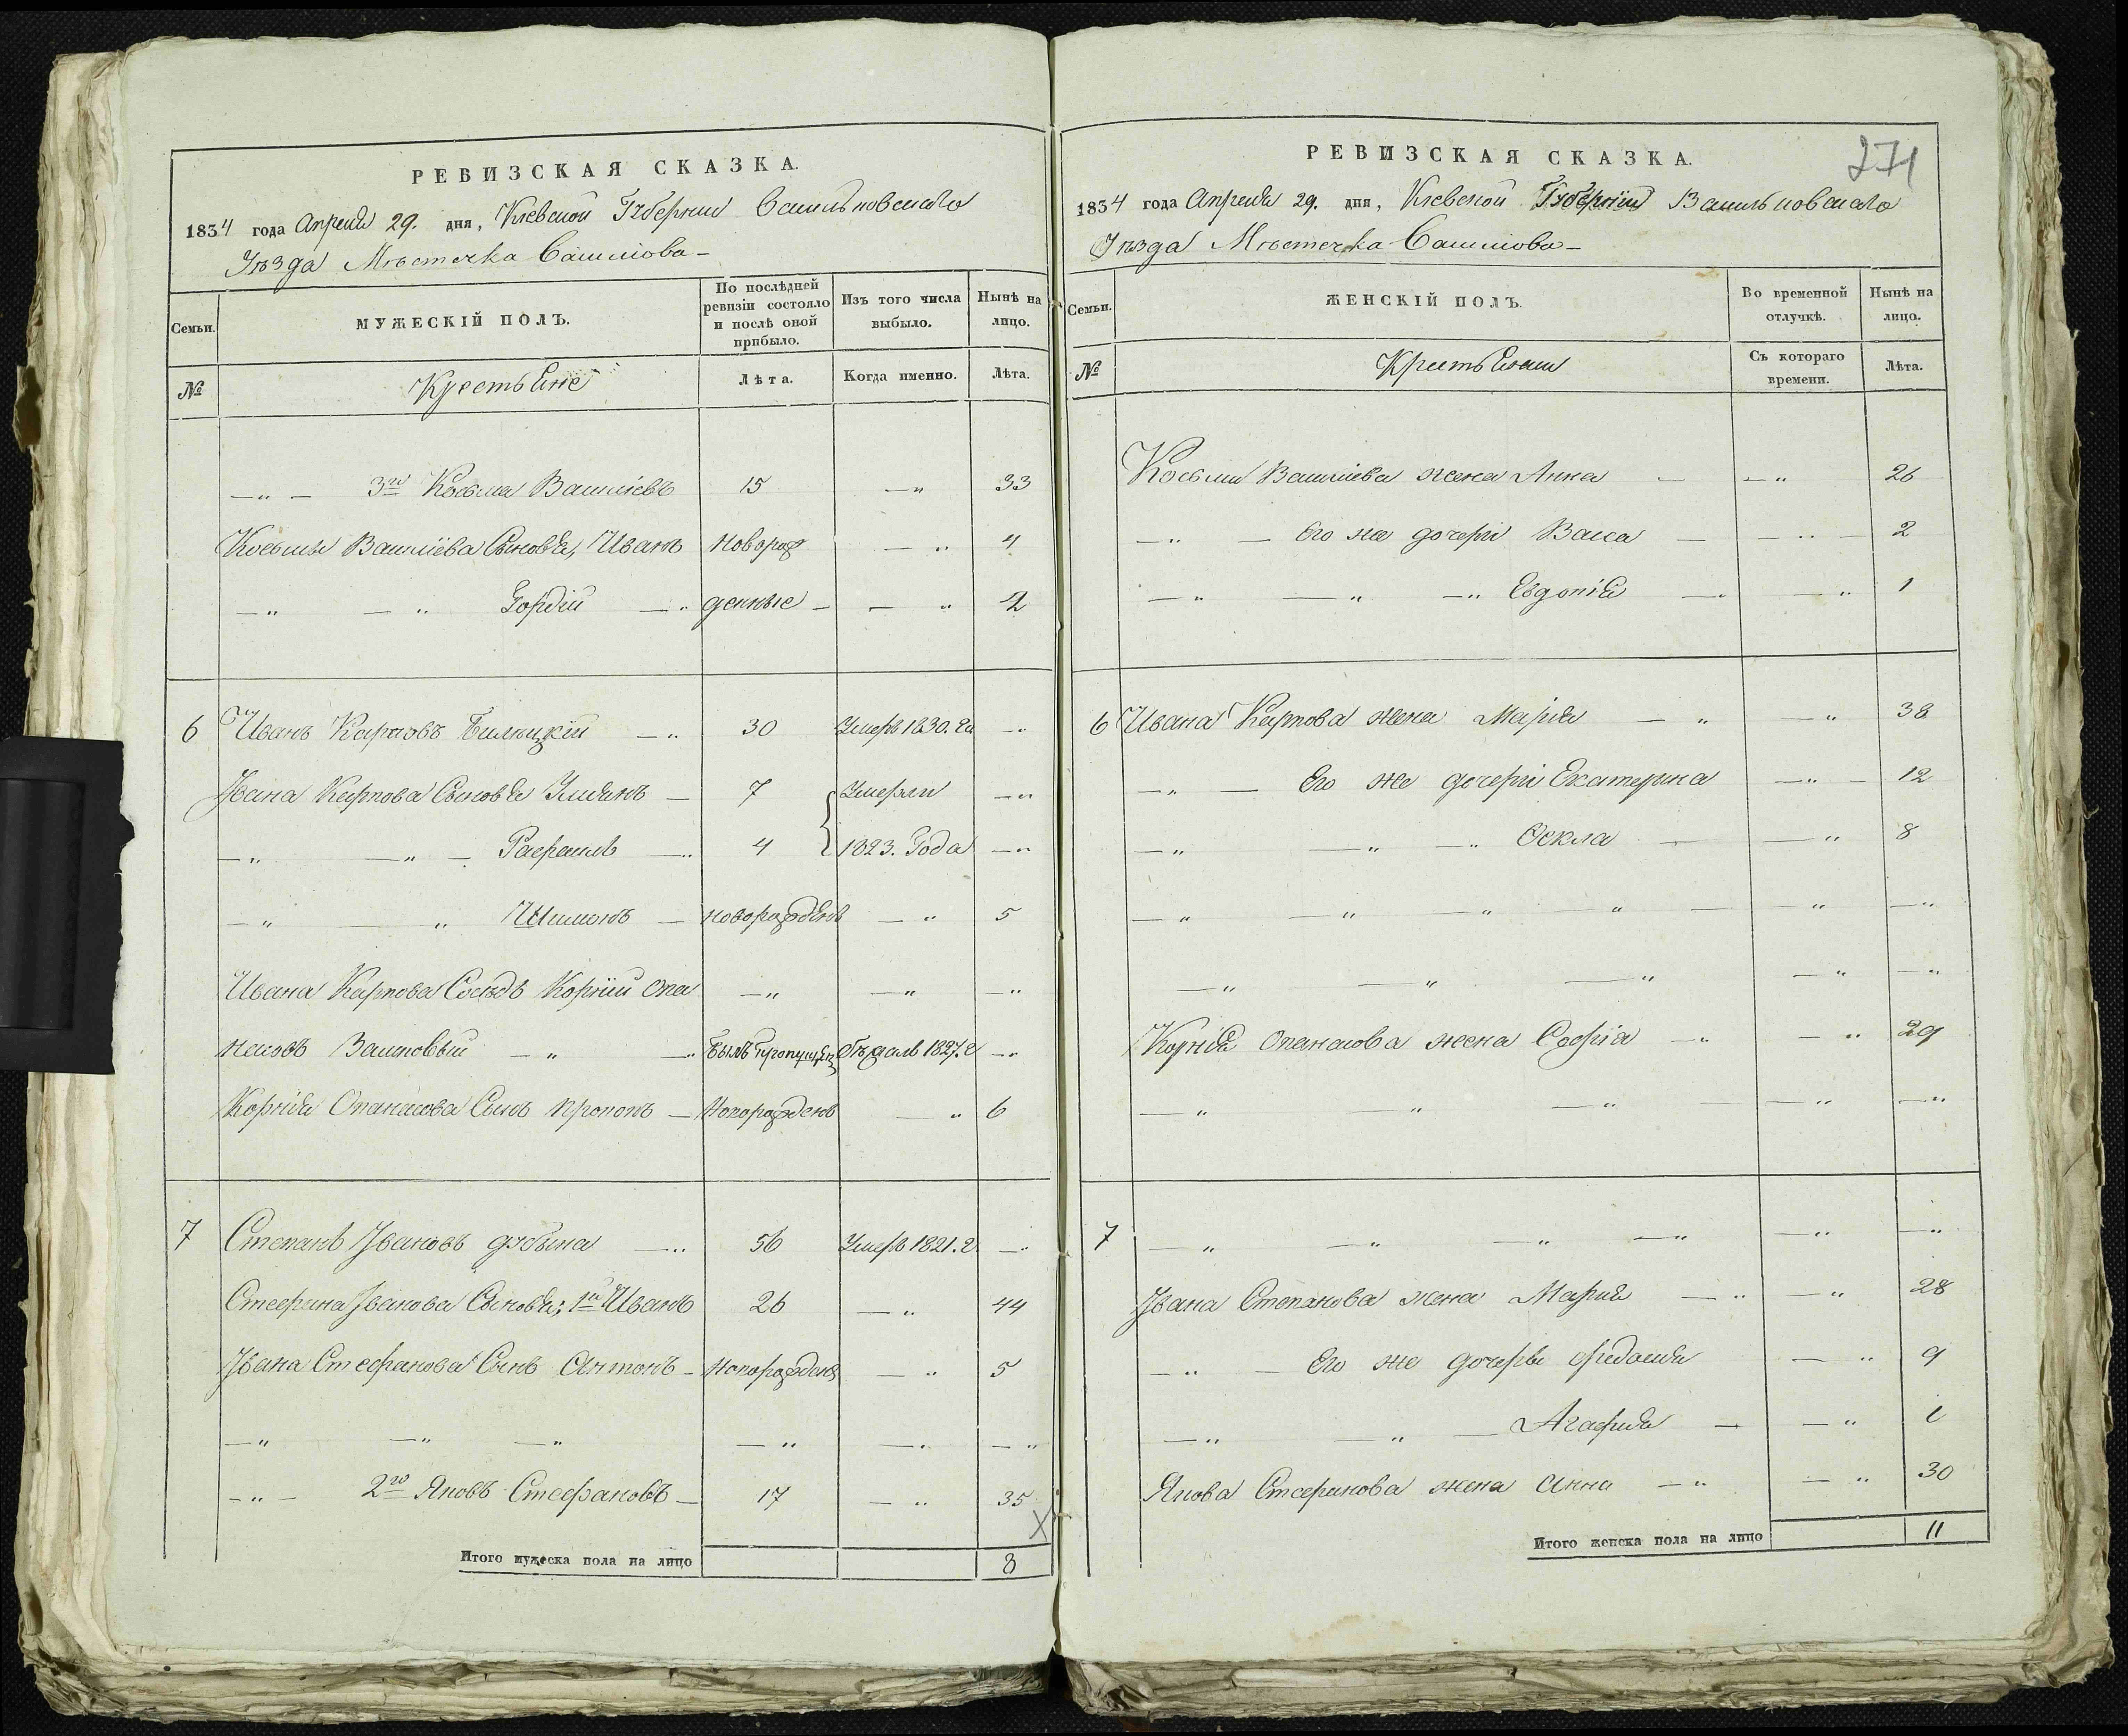 РЕВИЗСКАЯ СКАЗКА.
1834 года Апреля 29. дня, Кіевской Губерніи Васильковскаго
Уѣзда Мѣстечка
Семьи.
МУЖЕСКІЙ ПОЛЪ.
По послѣдней ревизіи состояло и послѣ оной прибыло.
Изъ того числа выбыло.
Нынѣ на лицо.
№
Крестьяне
Лѣта.
Когда именно.
Лѣта.
—„— 3й Косьма Василіевъ 15 —„ 33
Косьмы Василіева Сыновья, Иванъ новорож —„ 4
—„ —„ Гордій —„ денные — —„ 2
6 Иванъ Карповъ —„ 30 Умеръ 1830. го —„
Івана Карпова Сыновья — 7 Умерли —„
—„ —„— —„ 4 1823. Года —„
—„ —„ Шимонъ — новорожденъ —„ 5
Ивана Карпова Сосѣдъ Корній Опа —„ —„ —„
насовъ —„ —„ Былъ пропущенъ Бѣжалъ 1827. г —„
Корнія Опанасова Сынъ Прокопъ — Новорожденъ —„ 6
7 Степанъ Івановъ —„ 56 Умеръ 1821. г —„
Стефана Іванова Сыновья; 1й Иванъ 26 —„ 44
Івана Стефанова Сынъ Антонъ — Новорожденъ —„ 5
—„ —„ —„ —„ —„ —„
—„— 2й Яковъ Стефановъ — 17 —„ 35
Х
Итого мужеска пола на лицо 8
РЕВИЗСКАЯ СКАЗКА.
271
1834 года Апреля 29. дня, Кіевской Губерніи Васильковскаго
Уѣзда Мѣстечка
Семьи.
ЖЕНСКІЙ ПОЛЪ.
Во временной отлучкѣ.
Нынѣ на лицо.
№
Крестьянки
Съ котораго времени.
Лѣта.
Косьмы Василіева жена Анна — —„ 26
—„ — Его же дочери Васса — —„— 2
—„ —„ —„ Евдокія —„ —„ 1
6 Ивана Карпова жена Марія —„ —„ 38
—„ — Его же дочери Екатерина —„— 12
—„ —„ —„ Ѳекла — —„ 8
—„ —„ —„ —„ — —„ —„
—„ —„ —„ —„ —„
Корнія Опанасова жена Софія —„ —„ 29
—„ —„ —„ — —„ —„
7 —„ —„ —„ —„ —„ —„
Івана Степанова жена Марія —„ —„ 28
—„ — Его же дочери Федосія —„ 9
—„ —„ — Агафія — —„ 1
Якова Стефанова жена Анна —„ —„ 30
Итого женска пола на лицо 11